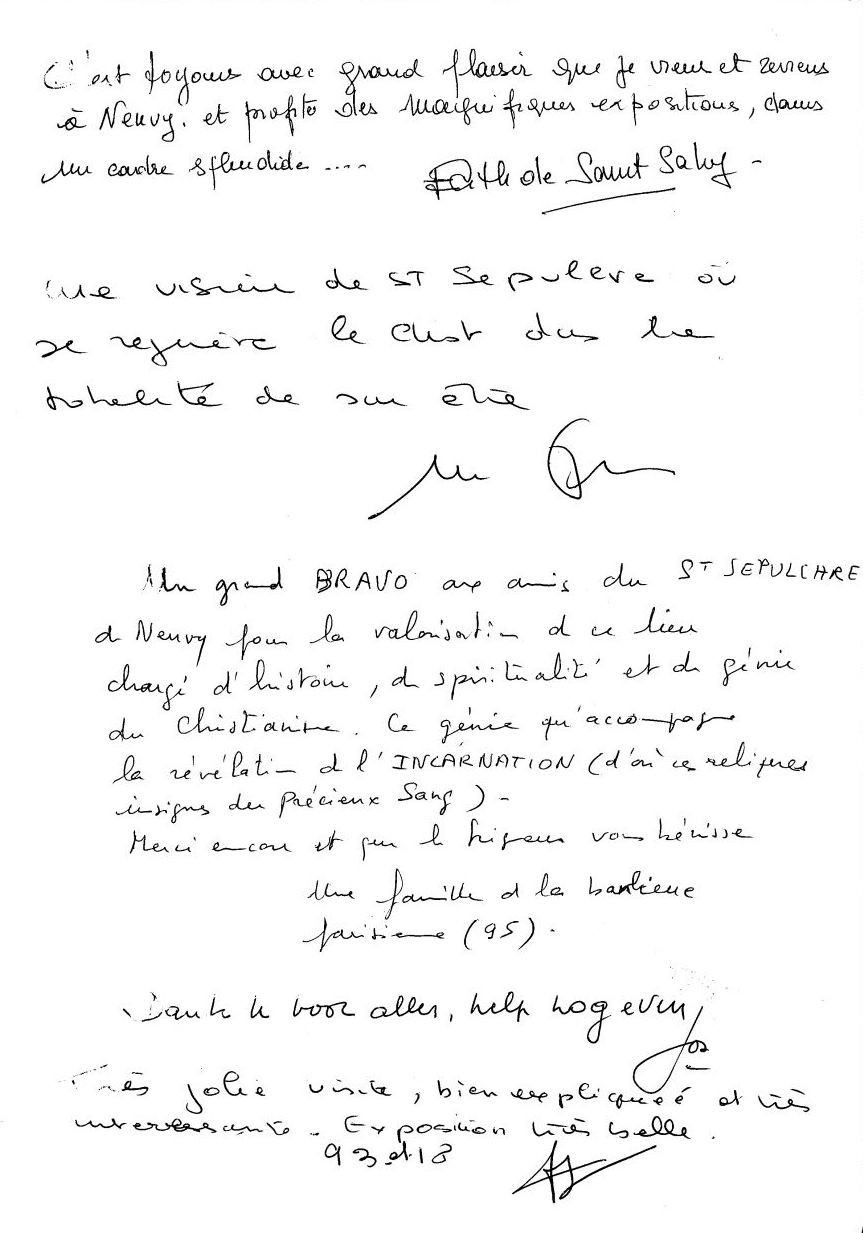 C'est toujours avec grand plaisir que je viens et reviens
à Neuvy. et profite des magnifiques expositions, dans
un cadre splendide ....
de Saint Salvy -
une vision de ST Sepulcre où
se regnère le Christ dans
totalité de son être
Un grand BRAVO aux amis du ST SEPULCHRE
de Neuvy pour la valorisation de ce lieu
chargé d'histoire, de spiritualité et de génie
du Christianisme. Ce génie qu'accompagne
la révélation de l'INCARNATION (d'où ces reliques
insignes du Précieux Sang) -
Merci encore et que le Seigneur vous bénisse
Une famille de la banlieue
parisienne (95).
Dank U voor alles, help nog even
Jos
Très jolie visite, bien expliquée et très
interessante. Exposition très belle.
93 et 18